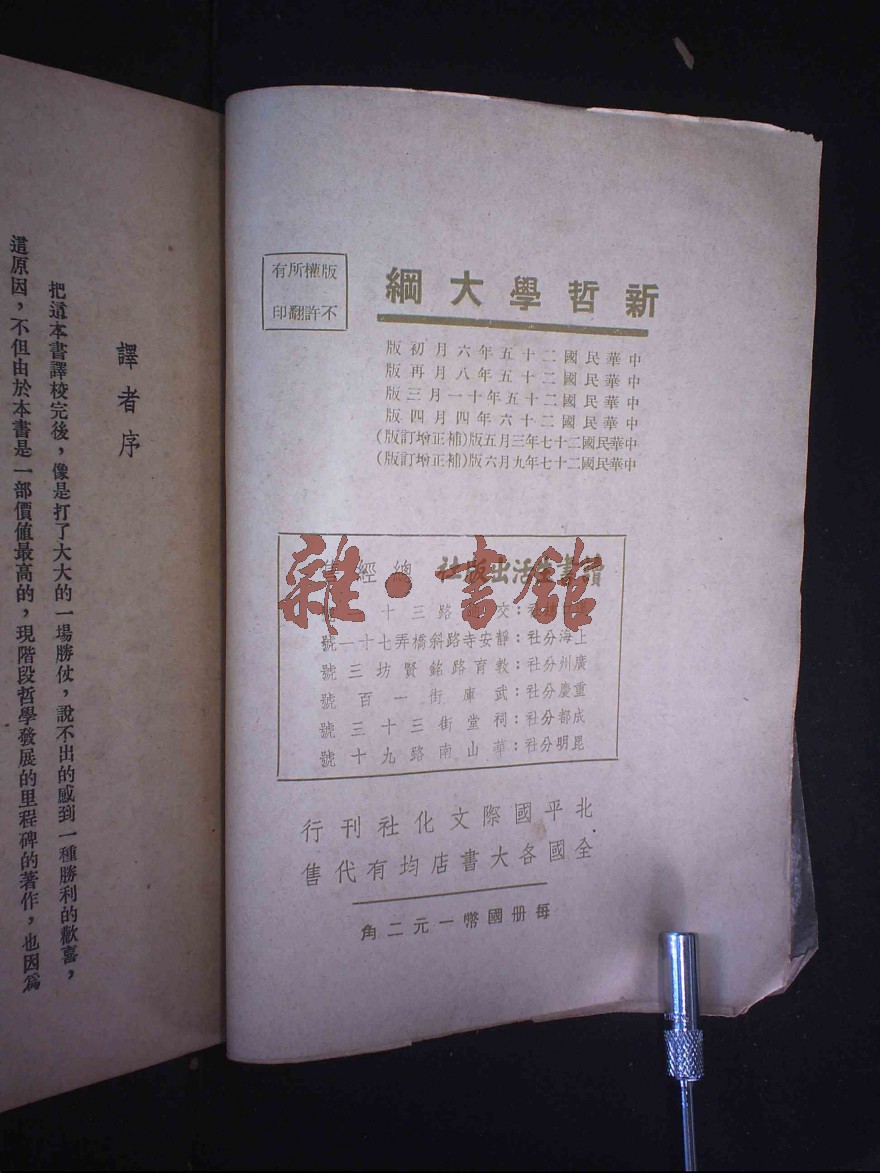 新哲學大綱
版權所有
不許翻印
中華民國二十五年六月初版
中華民國二十五年八月再版
中華民國二十五年十一月三版
中華民國二十六年四月四版
中華民國二十七年三月五版(補正增訂版)
中華民國二十七年九月六版(補正增訂版)
讀書生活出版社 總經售
交 路三十
上海分社：靜安寺路斜橋弄七十一號
廣州分社：教育路銘賢坊三號
重慶分社：武庫街一百號
成都分社：祠堂街三十三號
昆明分社：華山南路九十號
北平國際文化社刊行
全國各大書店均有代售
每册國幣一元二角
譯者序
把這本書譯校完後，像是打了大大的一場勝仗，說不出的感到一種勝利的歡喜，
這原因，不但由於本書是一部價值最高的，現階段哲學發展的里程碑的著作，也因爲
雜·書館